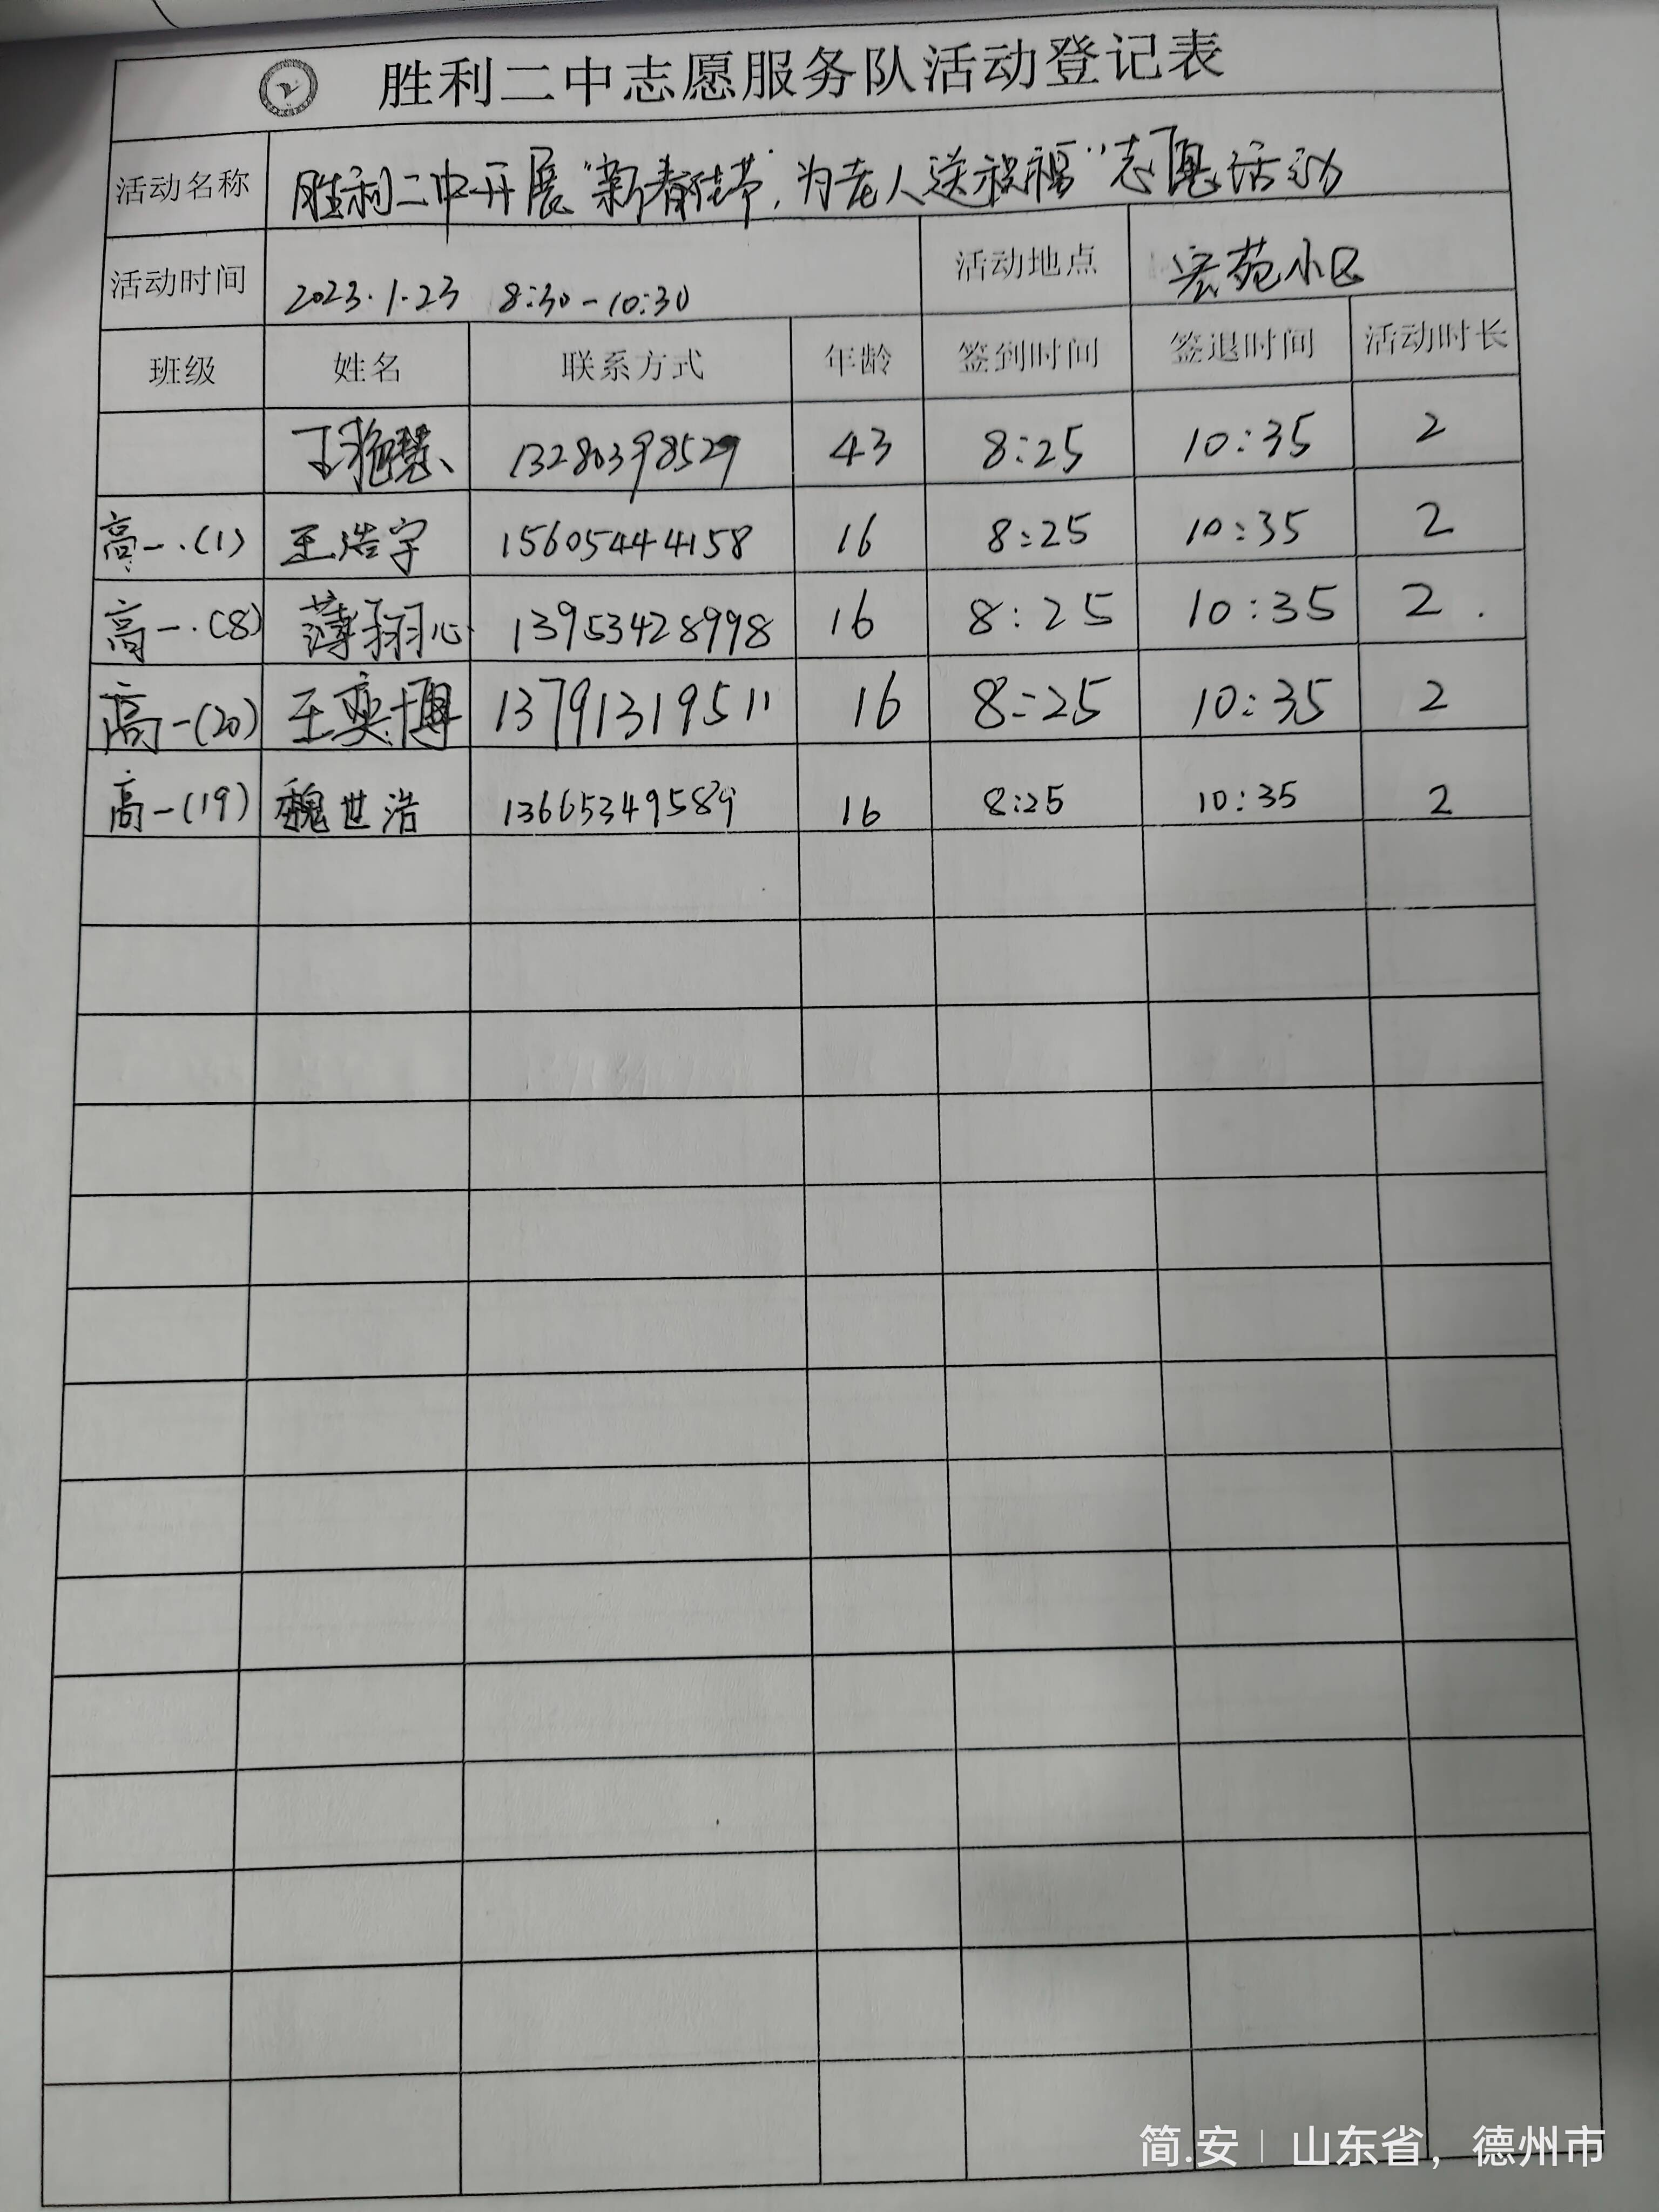 胜利二中志愿服务队活动登记表
活动名称 胜利二中开展"新春佳节,为老人送祝福"志愿活动
活动时间 2023.1.23 8:30-10:30 活动地点 宏苑小区
班级 姓名 联系方式 年龄 签到时间 签退时间 活动时长
王艳慧 13280398529 43 8:25 10:35 2
高一.(1) 王浩宇 15605444158 16 8:25 10:35 2
高一.(8) 薄翙心 13953428998 16 8:25 10:35 2
高一(20) 王奕博 13791319511 16 8:25 10:35 2
高一(19) 魏世浩 13665349589 16 8:25 10:35 2
简.安 | 山东省，德州市